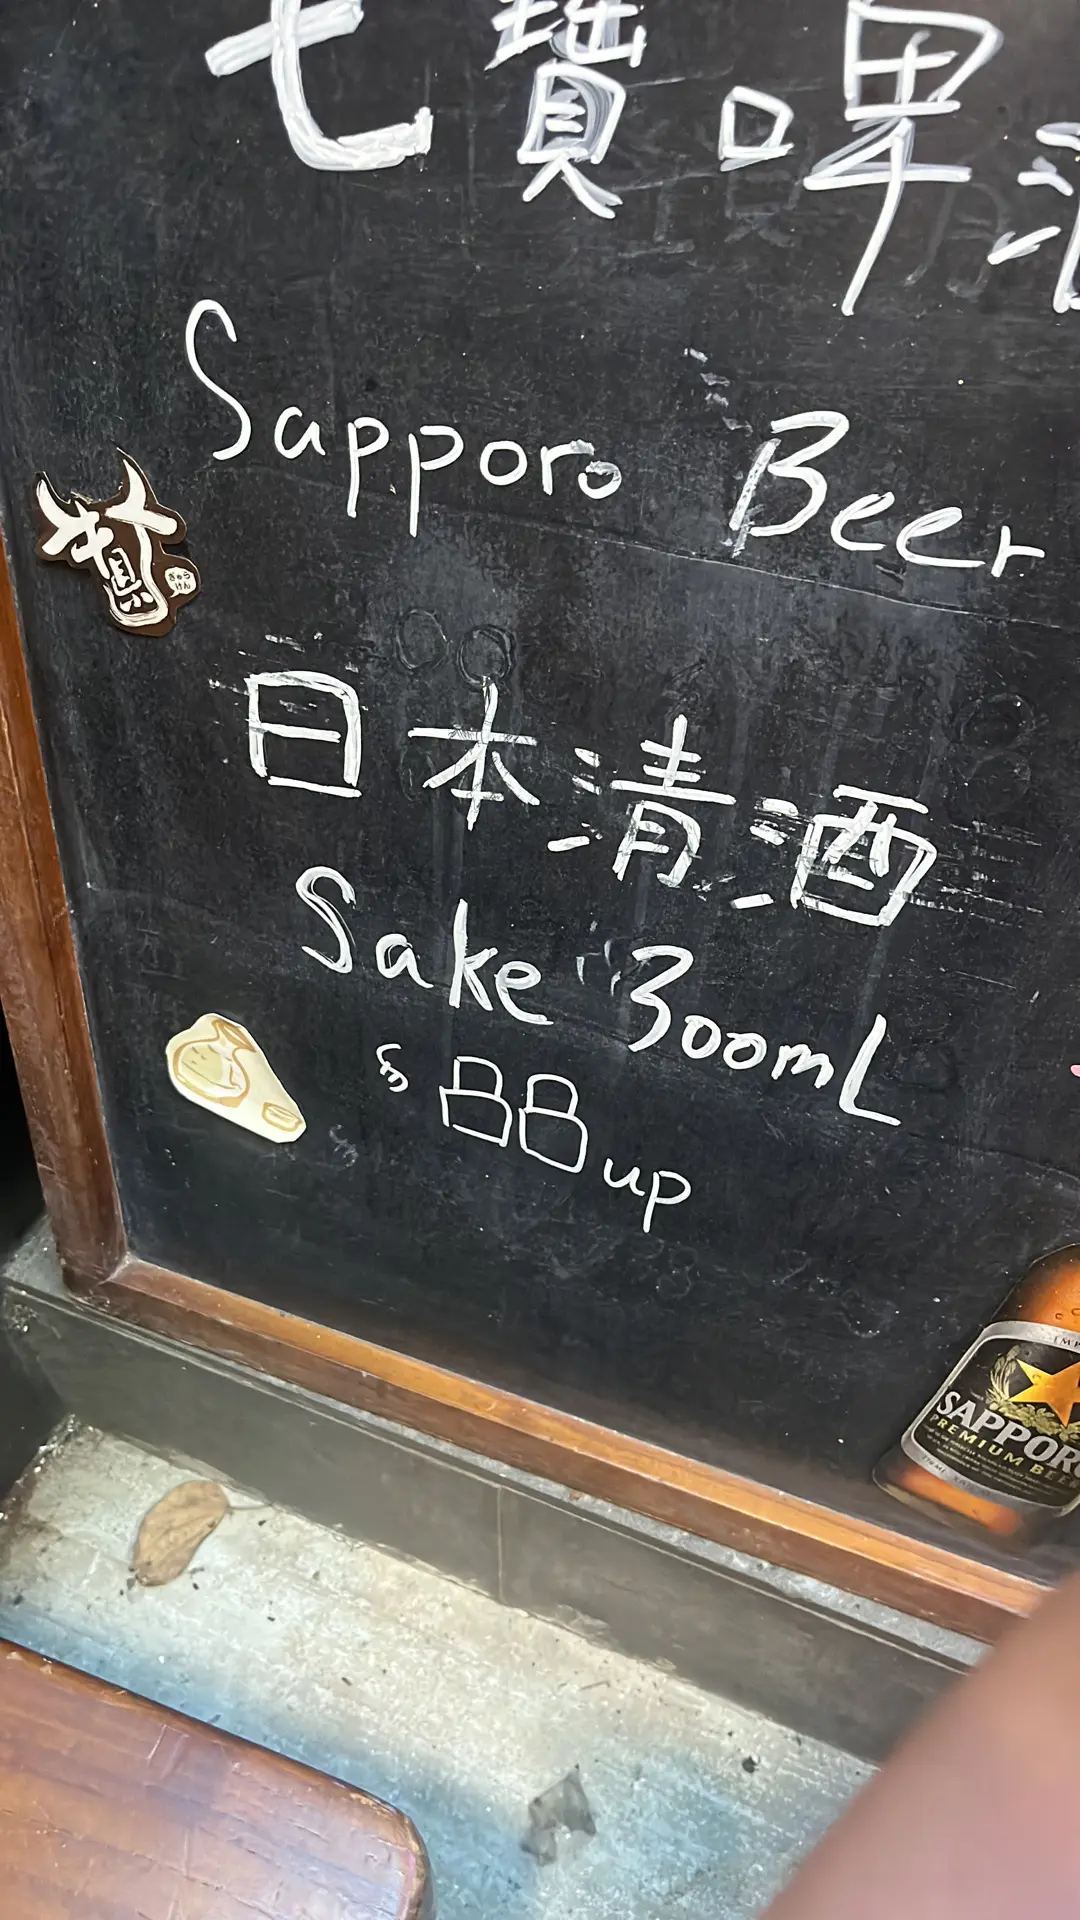 七寶啤酒
Sapporo Beer
牛惠
ぎゅう
けん
日本清酒
Sake 300mL
$88up
SAPPORO
PREMIUM BEER